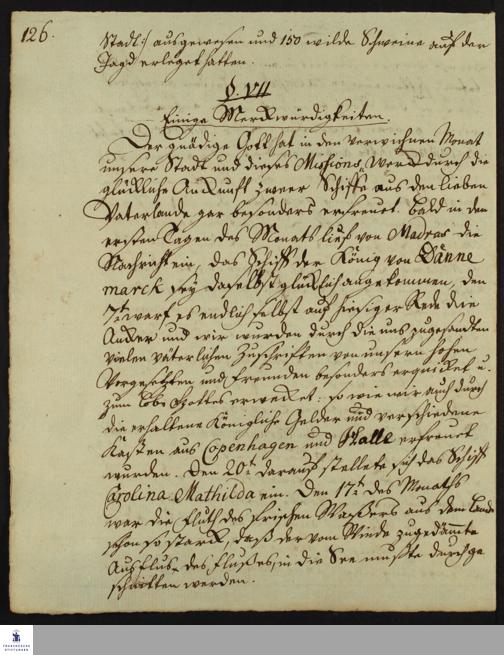 126.
Stadt:/ ausgewesen und 150 wilde Schweine auf der
Jagd erleget hatten.
§. VII
Einige Merckwürdigkeiten.
Der gnädige Gott hat in den verwichnen Monat
unsere Stadt und dieses Missions Werck durch die
glückliche Ankunft zweer Schiffe aus den lieben
Vaterlande gar besonders erfreuet. Bald in den
ersten Tagen des Monats lief von Madras die
Nachricht ein, das Schiff der König von Dänne
marck sey daselbst glücklich angekommen, den
7t. warf es endlich selbst auf hiesiger Rede die
Ancker und wir wurden durch die uns zugesandten
vielen väterlichen Zuschriften von unseren hohen
Vorgesetzten und Freunden besonders erquicket u.
zum Lobe Gottes erwecket: so wie wir auch durch
die erhaltene Königliche Gelder und verschiedene
Kasten aus Copenhagen und Halle erfreuet
wurden. Den 20t. darauf stellete sich das Schiff
Carolina Mathilda ein. Den 17t. des Monaths
war die Fluth des frischen Wassers aus dem Lande
schon so starck, daß der vom Winde zugedämte
Ausflus des Flusses in die See muste durchge
schnitten werden.
FRANCKESCHE
STIFTUNGEN